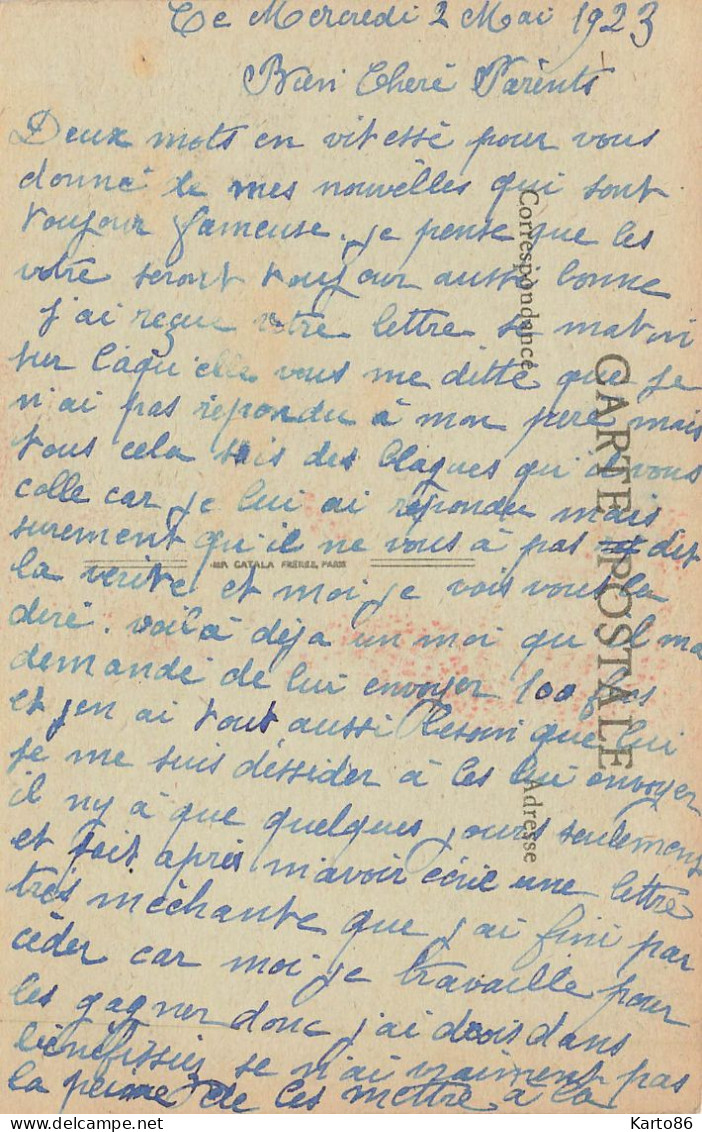 Ce Mercredi 2 Mai 1923
Bien Cheré Parents
Deux mots en vitessé pour vous
donné de mes nouvèlles qui sont
toujour fameuse. je pense que les
votre seront toujour aussi bonne
j'ai reçue votre lettre se matin
sur laqu'elle vous me ditte que je
n'ai pas répondu à mon pere mais
tous cela sais des blagues qu'il vous
colle car je lui ai répondu mais
surement qu'il ne vous à pas dit
la verité et moi je vois vous la
diré. voilà déja un moi qu'il ma
demandé de lui envoyer 100 frs
et j'en ai tout aussi besoin que lui
je me suis déssider à les lui envoyer
il ny à que quelques jours seulement
et soit aprés m'avoir écrit une lettre
trés méchante que j'ai fini par
céder car moi je travaille pour
les gagner donc j'ai dans
bénéfissiez je n'ai vraiment pas
la peine de les mettre à la
Correspondance
CARTE POSTALE
Adresse
CATALA FRÈRES, PARIS
Karto86